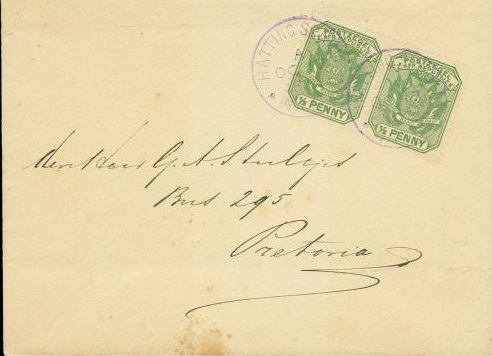 HATTING S
OC
POSTZEGEL
Z. AFR. REPUBLIEK
½ PENNY
POSTZEGEL
Z. AFR. REPUBLIEK
½ PENNY
den Heer G. A.
Bus 295
Pretoria